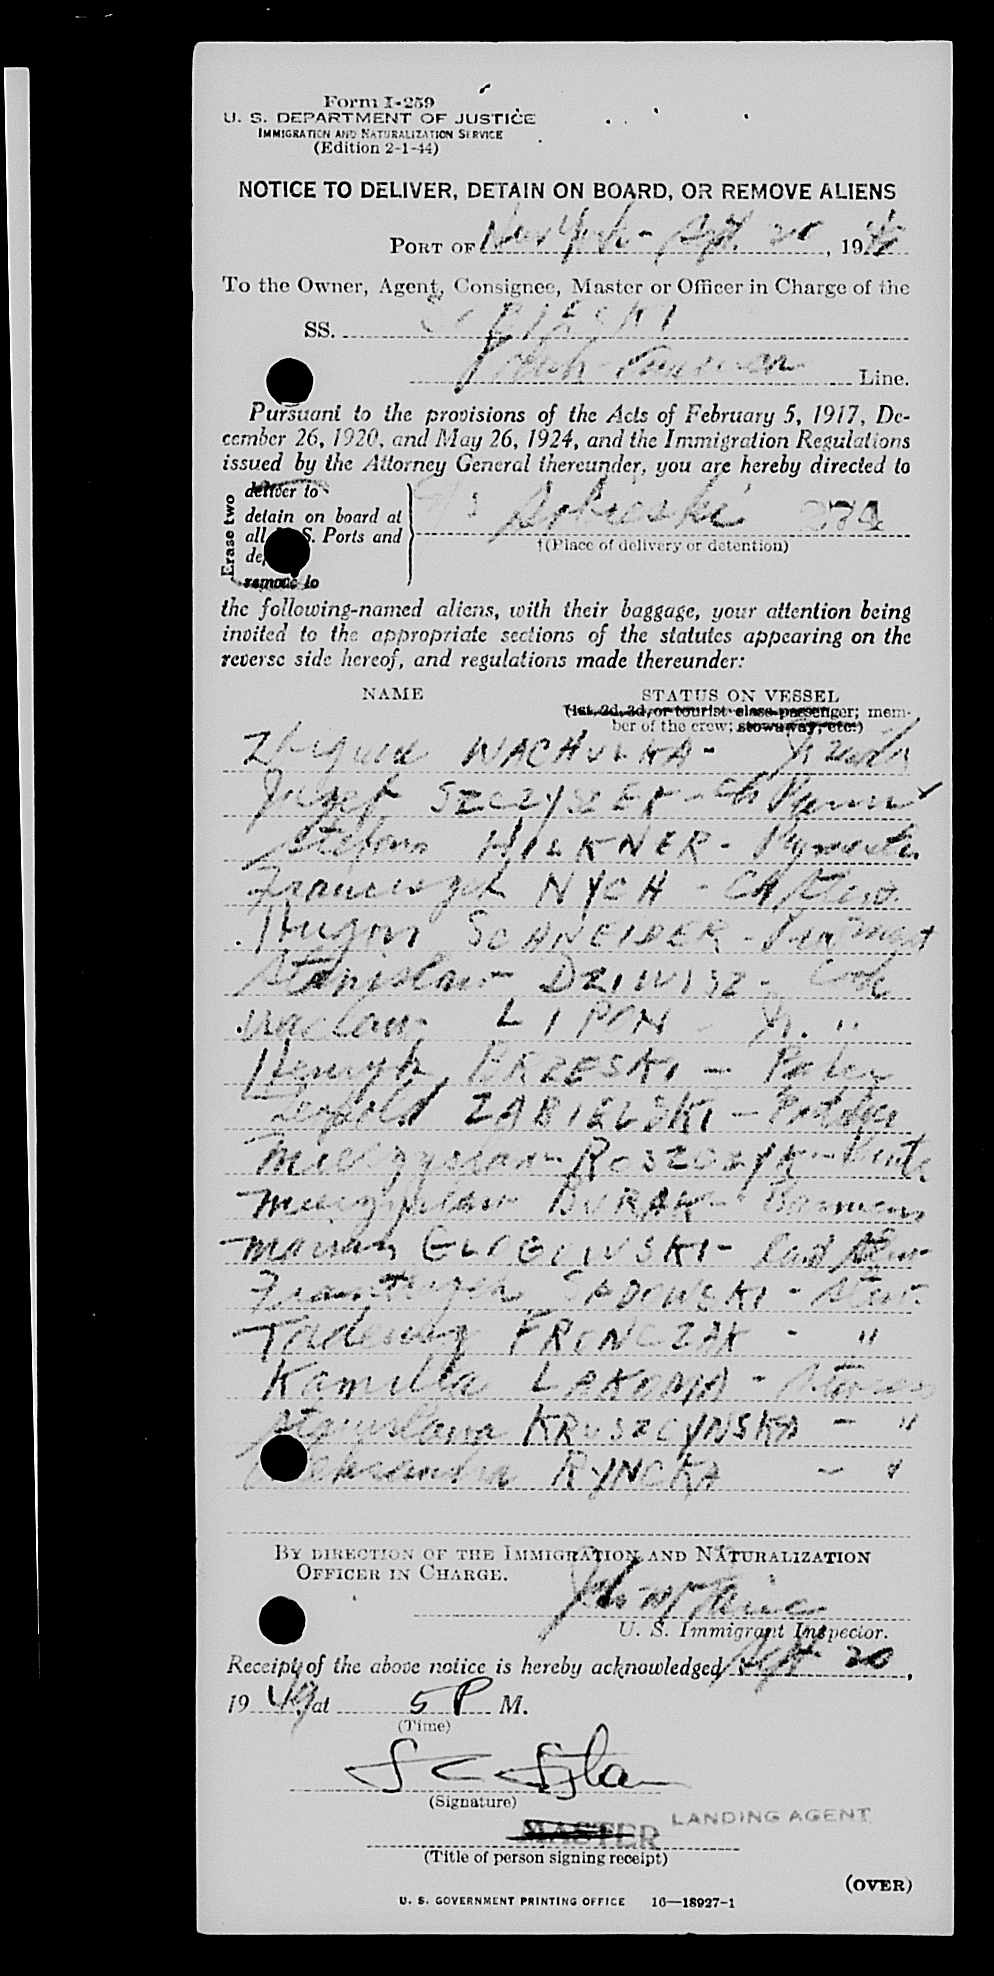 Form I-259
U. S. DEPARTMENT OF JUSTICE
IMMIGRATION AND NATURALIZATION SERVICE
(Edition 2-1-44)
NOTICE TO DELIVER, DETAIN ON BOARD, OR REMOVE ALIENS
PORT OF New York - Sept. 20, 1949
To the Owner, Agent, Consignee, Master or Officer in Charge of the
SS. SOBIESKI
Line.
Pursuant to the provisions of the Acts of February 5, 1917, De-
cember 26, 1920, and May 26, 1924, and the Immigration Regulations
issued by the Attorney General thereunder, you are hereby directed to
Erase two
deliver to
detain on board at
all U. S. Ports and
remove to
Sobieski 274
†(Place of delivery or detention)
the following-named aliens, with their baggage, your attention being
invited to the appropriate sections of the statutes appearing on the
reverse side hereof, and regulations made thereunder:
NAME STATUS ON VESSEL
(1st, 2d, 3d, or tourist class passenger; mem-
ber of the crew; stowaway, etc.)
WACHULKA -
Józef SZCZYSZEK -
Stefan HILKNER -
Franciszek NYCH - Ch Stew.
Hugon SCHNEIDER -
Stanislaw DZIWISZ - Cook
Waclaw LIPON - "
Henryk BRZESKI - Baker
Leopold ZABIELSKI -
Mieczyslaw ROSZCZYK -
Mieczyslaw BURAK -
Marian GLOGOWSKI - Stew
Franciszek SADOWSKI - Stew.
Tadeusz FRONCZAK - "
Kamilla LAKOMA -
Stanislawa KRUSZCYNSKA - "
Aleksandra RYNCKA - "
BY DIRECTION OF THE IMMIGRATION AND NATURALIZATION
OFFICER IN CHARGE.
U. S. Immigrant Inspector.
Receipt of the above notice is hereby acknowledged Sept 20,
1949 at 5 P M.
(Time)
(Signature)
MASTER LANDING AGENT
(Title of person signing receipt)
(OVER)
U. S. GOVERNMENT PRINTING OFFICE 16—18927-1